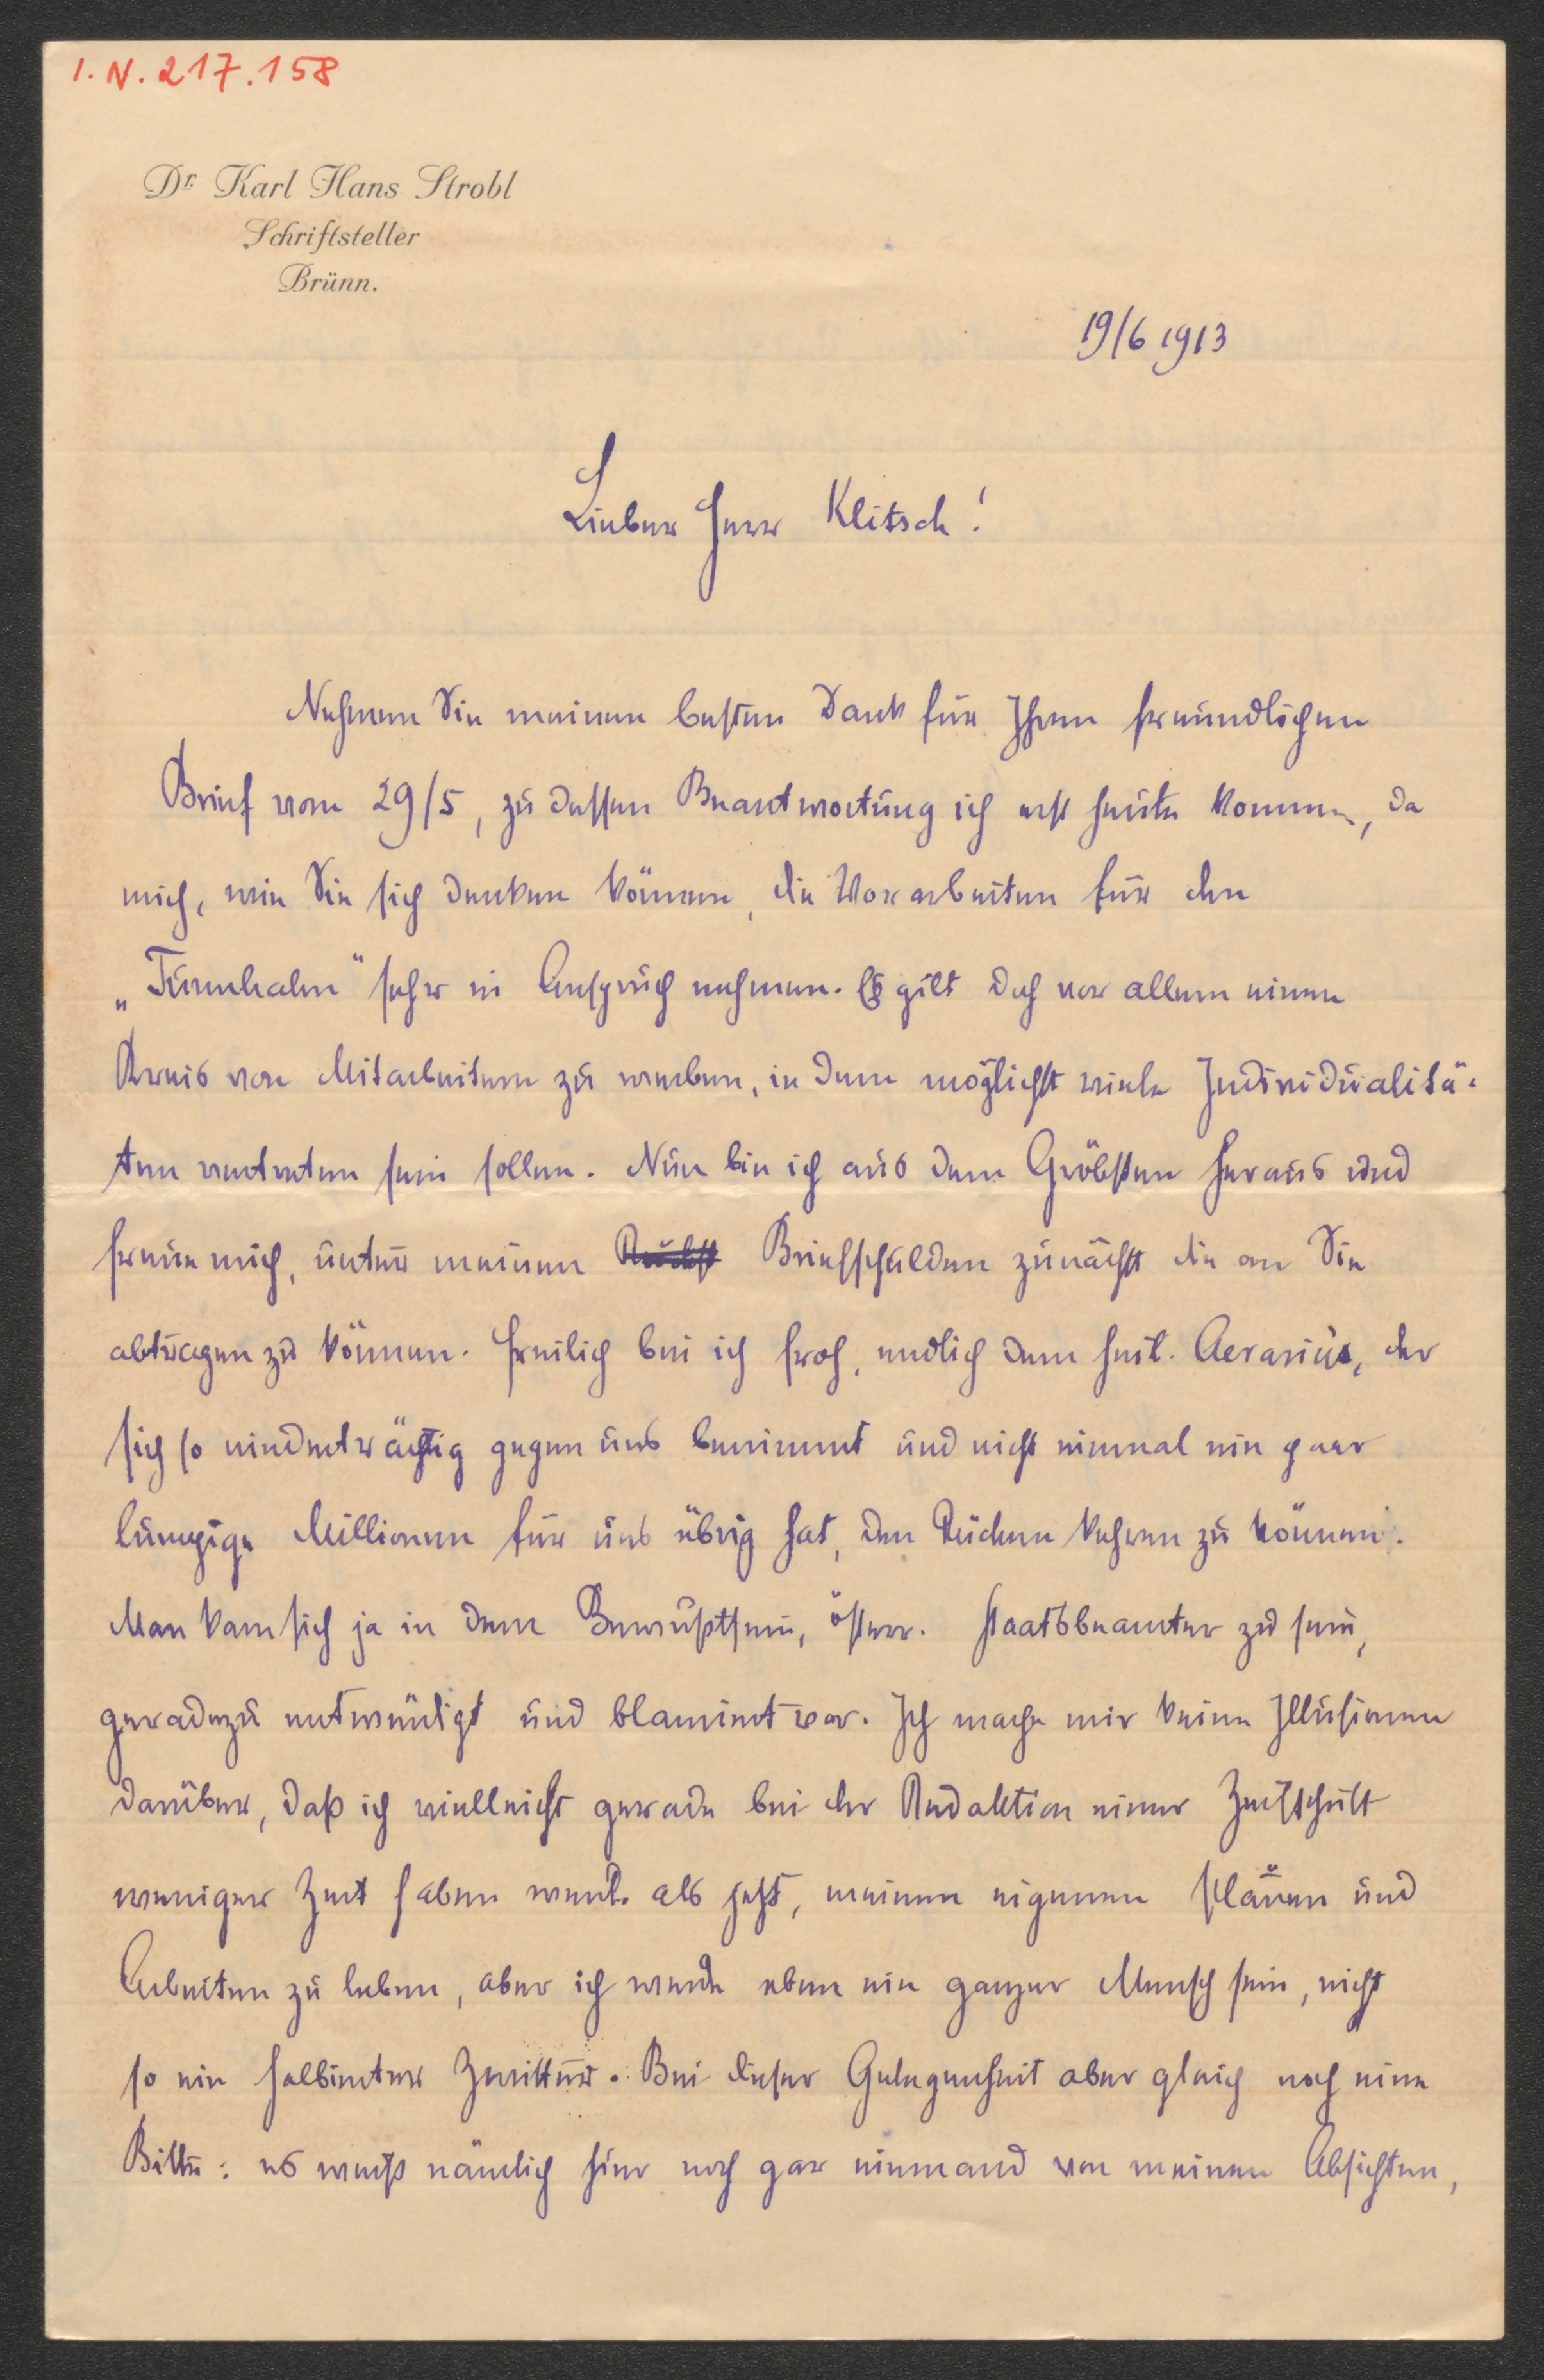 I. N. 217.158
Dr. Karl Hans Strobl
Schriftsteller
Brünn.
19/6 1913
Lieber Herr Klitsch!
Nehmen Sie meinen besten Dank für Ihren freundlichen
Brief vom 29/5, zu dessen Beantwortung ich erst heute komme, da
mich, wie Sie sich denken können, die Vorarbeiten für den
„Turmhahn" sehr in Anspruch nehmen. Es gilt doch vor allem einen
Kreis von Mitarbeitern zu werben, in dem möglichst viele Individualitä-
ten vertreten sein sollen. Nun bin ich aus dem Gröbsten heraus und
freue mich, unter meinen Briefschulden zunächst die an Sie
abtragen zu können. Freilich bin ich froh, endlich dem heil. Aerarius, der
sich so niederträchtig gegen uns benimmt und nicht einmal ein paar
lumpige Millionen für uns übrig hat, den Rücken kehren zu können.
Man kam sich ja in dem Bewußtsein, österr. Staatsbeamter zu sein,
geradezu entwürdigt und blamiert vor. Ich mache mir keine Illusionen
darüber, daß ich vielleicht gerade bei der Redaktion einer Zeitschrift
weniger Zeit haben werde als jetzt, meinen eigenen Plänen und
Arbeiten zu leben, aber ich werde eben ein ganzer Mensch sein, nicht
so ein halbierter Zwitter. Bei dieser Gelegenheit aber gleich noch eine
Bitte: es weiß nämlich hier noch gar niemand von meinen Absichten,